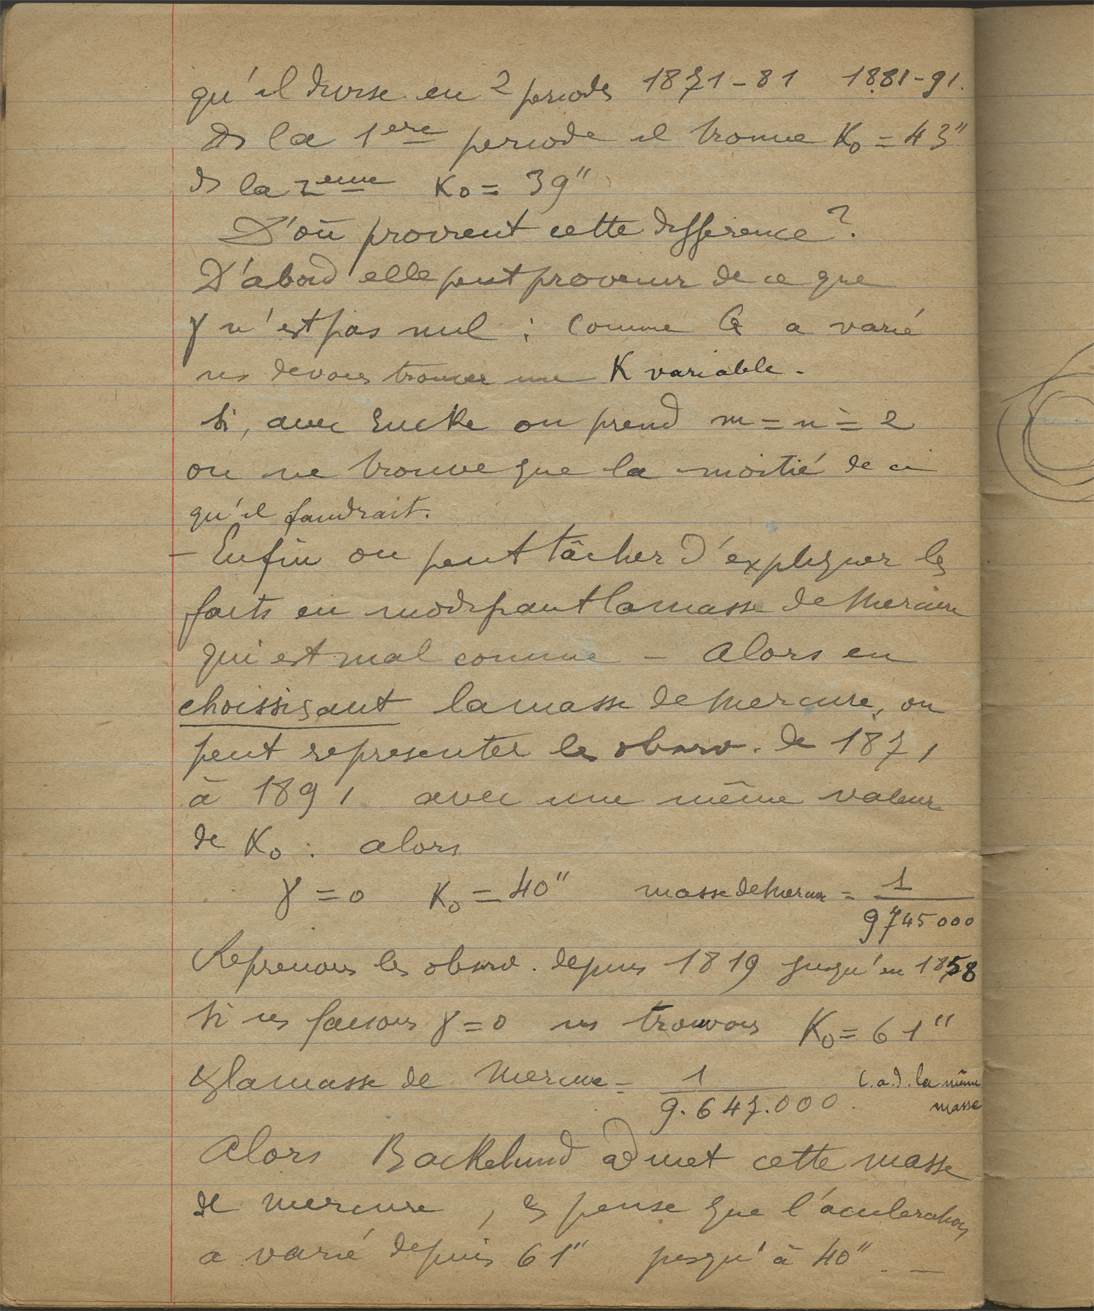 qu'il divise en 2 periodes 1871-81 1881-91.
Ds la 1ere periode il trouve K0 = 43"
ds la 2eme K0 = 39"
D'où provient cette difference ?
D'abord elle peut provenir de ce que
γ n'est pas nul : comme a a varié
ns devons trouver un K variable.
Si, avec Encke on prend m = n = 2
on ne trouve que la moitié de ce
qu'il faudrait.
- Enfin on peut tâcher d'expliquer les
faits en modifiant la masse de Mercure
qui est mal connue - Alors en
choississant la masse de Mercure, on
peut representer les observ. de 1871
à 1891 avec une même valeur
de K0 : alors
γ = 0 K0 = 40" masse de Mercure = 1/9745000
Reprenons les observ. depuis 1819 jusqu'en 1858
Si ns faisons γ = 0 ns trouvons K0 = 61"
& la masse de Mercure = 1/9.647.000 c.a.d. la même masse
Alors Backelund admet cette masse
de mercure, & pense que l'acceleration
a varié depuis 61" jusqu'à 40" - -